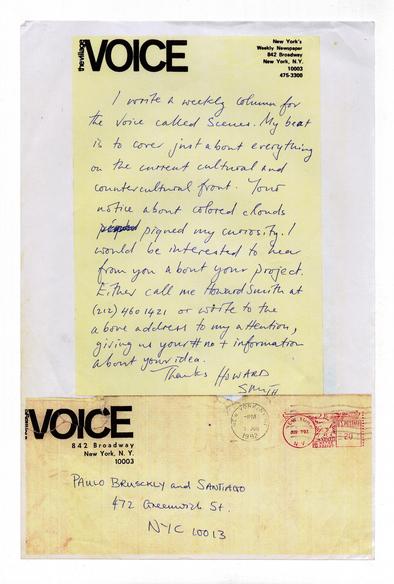 the village VOICE
New York's
Weekly Newspaper
842 Broadway
New York, N.Y.
10003
475-3300
I wrote a weekly column for
the Voice called Scenes. My beat
is to cover just about everything
on the current cultural and
countercultural front. Your
notice about colored clouds
piqued my curiosity. I
would be interested to hear
from you about your project.
Either call me Howard Smith at
(212) 460 1421 or write to the
above address to my attention,
giving us your # no + information
about your idea.
Thanks HOWARD
SMITH
the village VOICE
842 Broadway
New York, N.Y.
10003
NEW YORK
PM
1982
NEW YORK
N.Y.
PAULO BRUSCKLY and SANTIAGO
472 Greenwich St.
NYC 10013